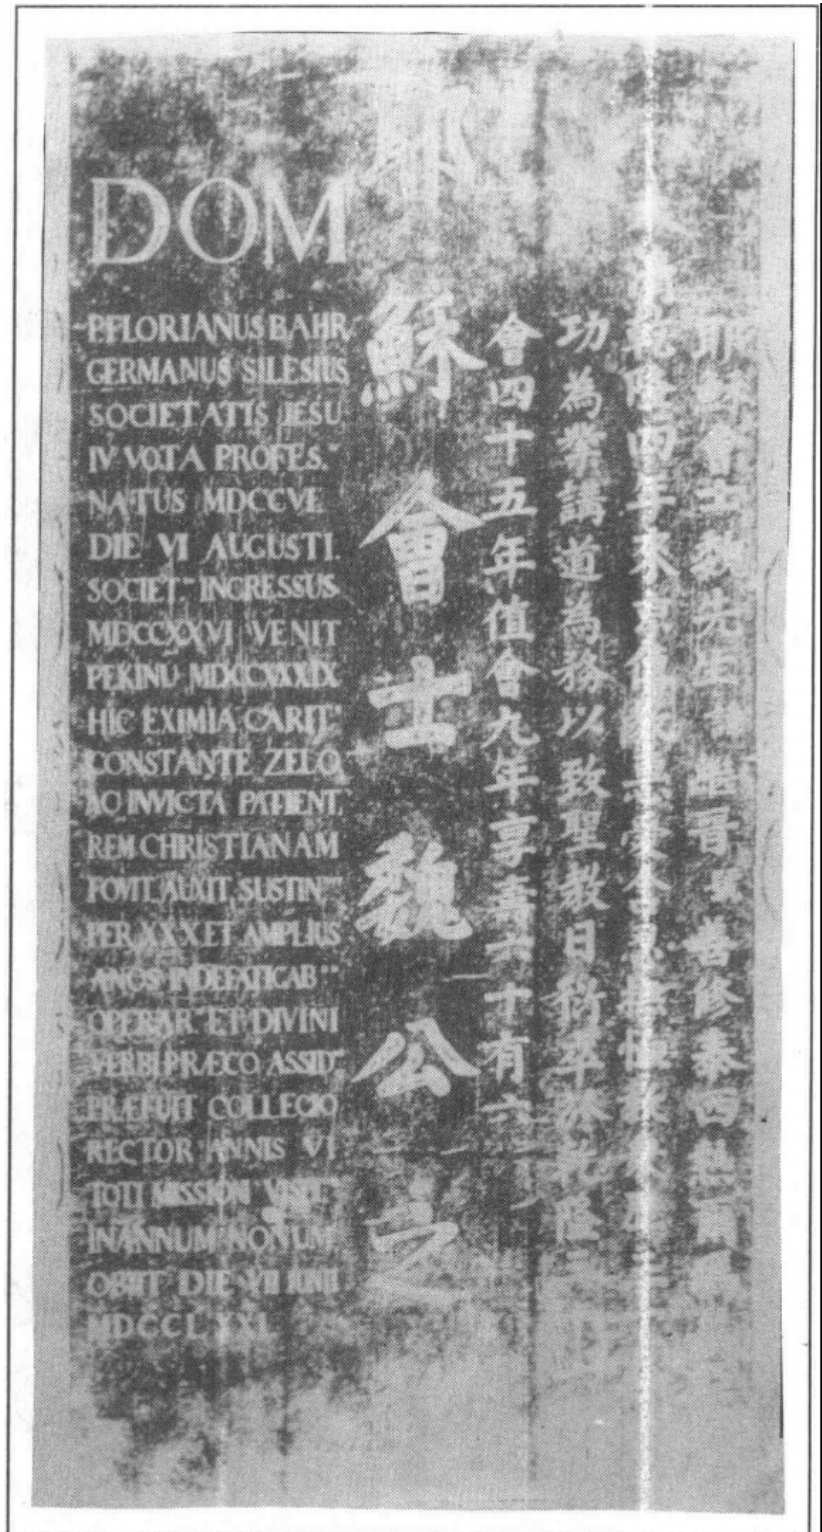 DOM
P. FLORIANUS BAHR
GERMANUS SILESIUS
SOCIETATIS JESU
IV VOTA PROFES.
NATUS MDCCVI
DIE VI AUGUSTI.
SOCIET INGRESSUS
MDCCXXVI VENIT
PEKINU MDCCXXXIX
HIC EXIMIA CARIT
CONSTANTE ZELO
AC INVICTA PATIENT.
REM CHRISTIANAM
FOVIT, AUXIT, SUSTIN
PER XXX ET AMPLIUS
ANOS INDEFATIGAB
OPERAR ET DIVINI
VERBI PRÆCO ASSID
PRÆFUIT COLLEGIO
RECTOR ANNIS VI
TOTI MISSION VISIT
IN ANNUM NONUM
OBIIT DIE VII JUNII
MDCCLXXI.
穌會士魏公之
耶穌會士魏先生諱繼晉號善修泰西熱爾
乾隆四年來京
功為業講道為務以致聖教日衍卒於乾隆三
會四十五年值會九年享壽六十有六